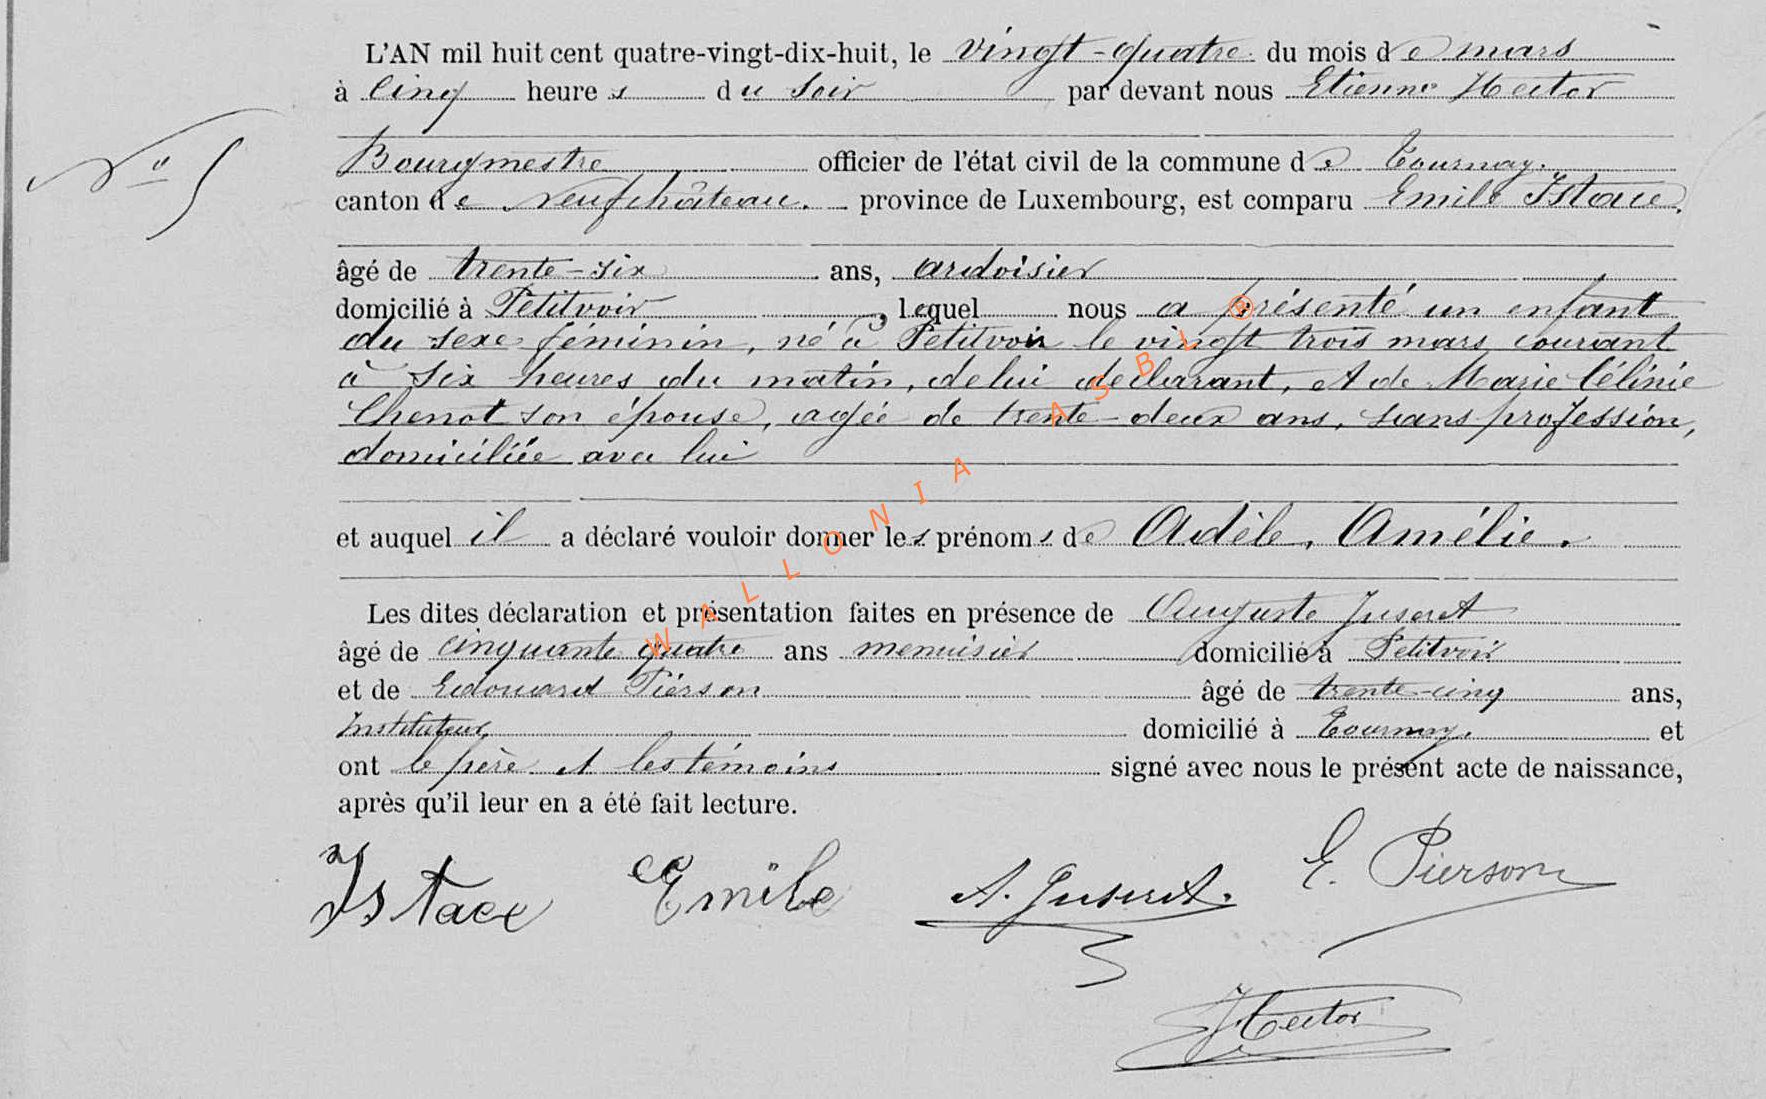 L'AN mil huit cent quatre-vingt-dix-huit, le vingt-quatre du mois de mars
à cinq heures du soir par devant nous Etienne Hector
N° 5
Bourgmestre officier de l'état civil de la commune de Tournay.
canton de Neufchâteau. province de Luxembourg, est comparu Emile Istace,
âgé de trente-six ans, ardoisier
domicilié à Petitvoir, lequel nous a présenté un enfant
du sexe féminin, né à Petitvoir le vingt trois mars courant
à six heures du matin, de lui declarant, et de Marie Célinie
Chenot son épouse, agée de trente-deux ans, sans profession,
domiciliée avec lui
et auquel il a déclaré vouloir donner les prénoms de Adèle, Amélie.
Les dites déclaration et présentation faites en présence de Auguste Juseret
âgé de cinquante quatre ans menuisier domicilié à Petitvoir
et de Edouard Pierson âgé de trente-cinq ans,
Instituteur, domicilié à Tournay. et
ont le père et les témoins signé avec nous le présent acte de naissance,
après qu'il leur en a été fait lecture.
Istace Emile A. Juseret. E. Pierson
Hector
WALLONIA ASBL ®